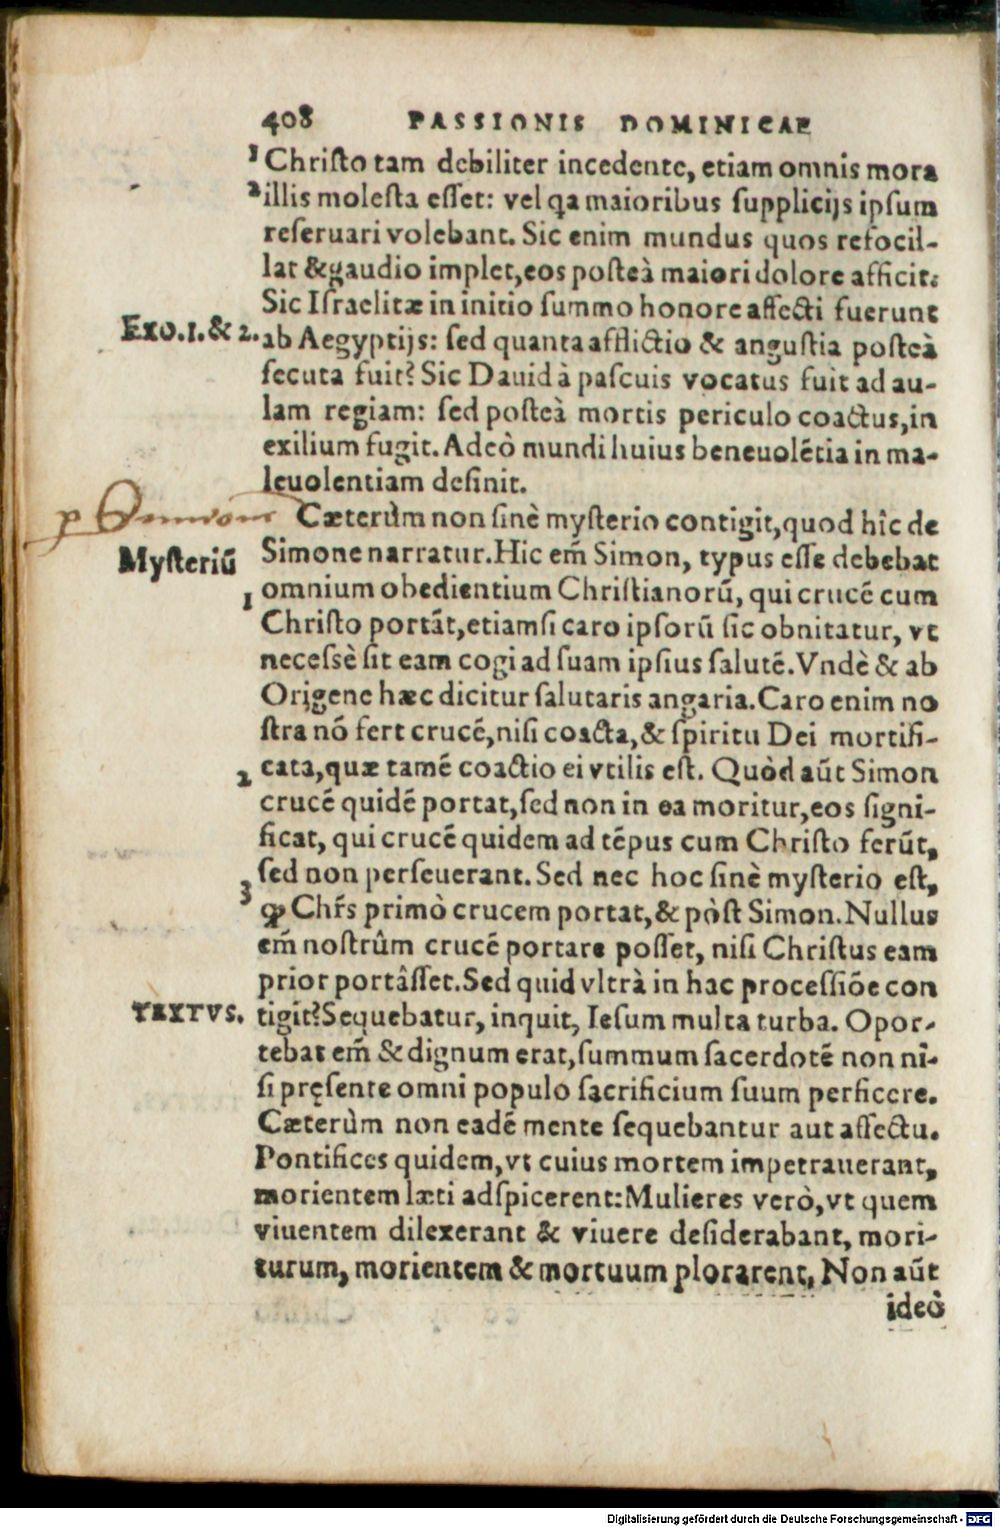 408 PASSIONIS DOMINICAE
1 Christo tam debiliter incedente, etiam omnis mora
2 illis molesta esset: vel qa maioribus supplicijs ipsum
reseruari volebant. Sic enim mundus quos refocil-
lat & gaudio implet, eos posteà maiori dolore afficit.
Sic Israelitæ in initio summo honore affecti fuerunt
EXO. 1. & 2. ab Aegyptijs: sed quanta afflictio & angustia posteà
secuta fuit? Sic Dauid à pascuis vocatus fuit ad au-
lam regiam: sed posteà mortis periculo coactus, in
exilium fugit. Adeò mundi huius beneuolẽtia in ma-
leuolentiam desinit.
Cæterùm non sinè mysterio contigit, quod hîc de
Mysteriũ Simone narratur. Hic em̃ Simon, typus esse debebat
1 omnium obedientium Christianorũ, qui crucẽ cum
Christo portãt, etiamsi caro ipsorũ sic obnitatur, vt
necessè sit eam cogi ad suam ipsius salutẽ. Vndè & ab
Origene hæc dicitur salutaris angaria. Caro enim no
stra nõ fert crucẽ, nisi coacta, & spiritu Dei mortifi-
2 cata, quæ tamẽ coactio ei vtilis est. Quòd aũt Simon
crucẽ quidẽ portat, sed non in ea moritur, eos signi-
ficat, qui crucẽ quidem ad tẽpus cum Christo ferũt,
sed non perseuerant. Sed nec hoc sinè mysterio est,
3 ꝙ Chr̃s primò crucem portat, & pòst Simon. Nullus
em̃ nostrûm crucẽ portare posset, nisi Christus eam
prior portâsset. Sed quid vltrà in hac processiõe con
TEXTVS. tigit? Sequebatur, inquit, Iesum multa turba. Opor-
tebat em̃ & dignum erat, summum sacerdotẽ non ni-
si pręsente omni populo sacrificium suum perficere.
Cæterùm non eadẽ mente sequebantur aut affectu.
Pontifices quidem, vt cuius mortem impetrauerant,
morientem læti adspicerent: Mulieres verò, vt quem
viuentem dilexerant & viuere desiderabant, mori-
turum, morientem & mortuum plorarent. Non aũt
ideò
Digitalisierung gefördert durch die Deutsche Forschungsgemeinschaft - DFG